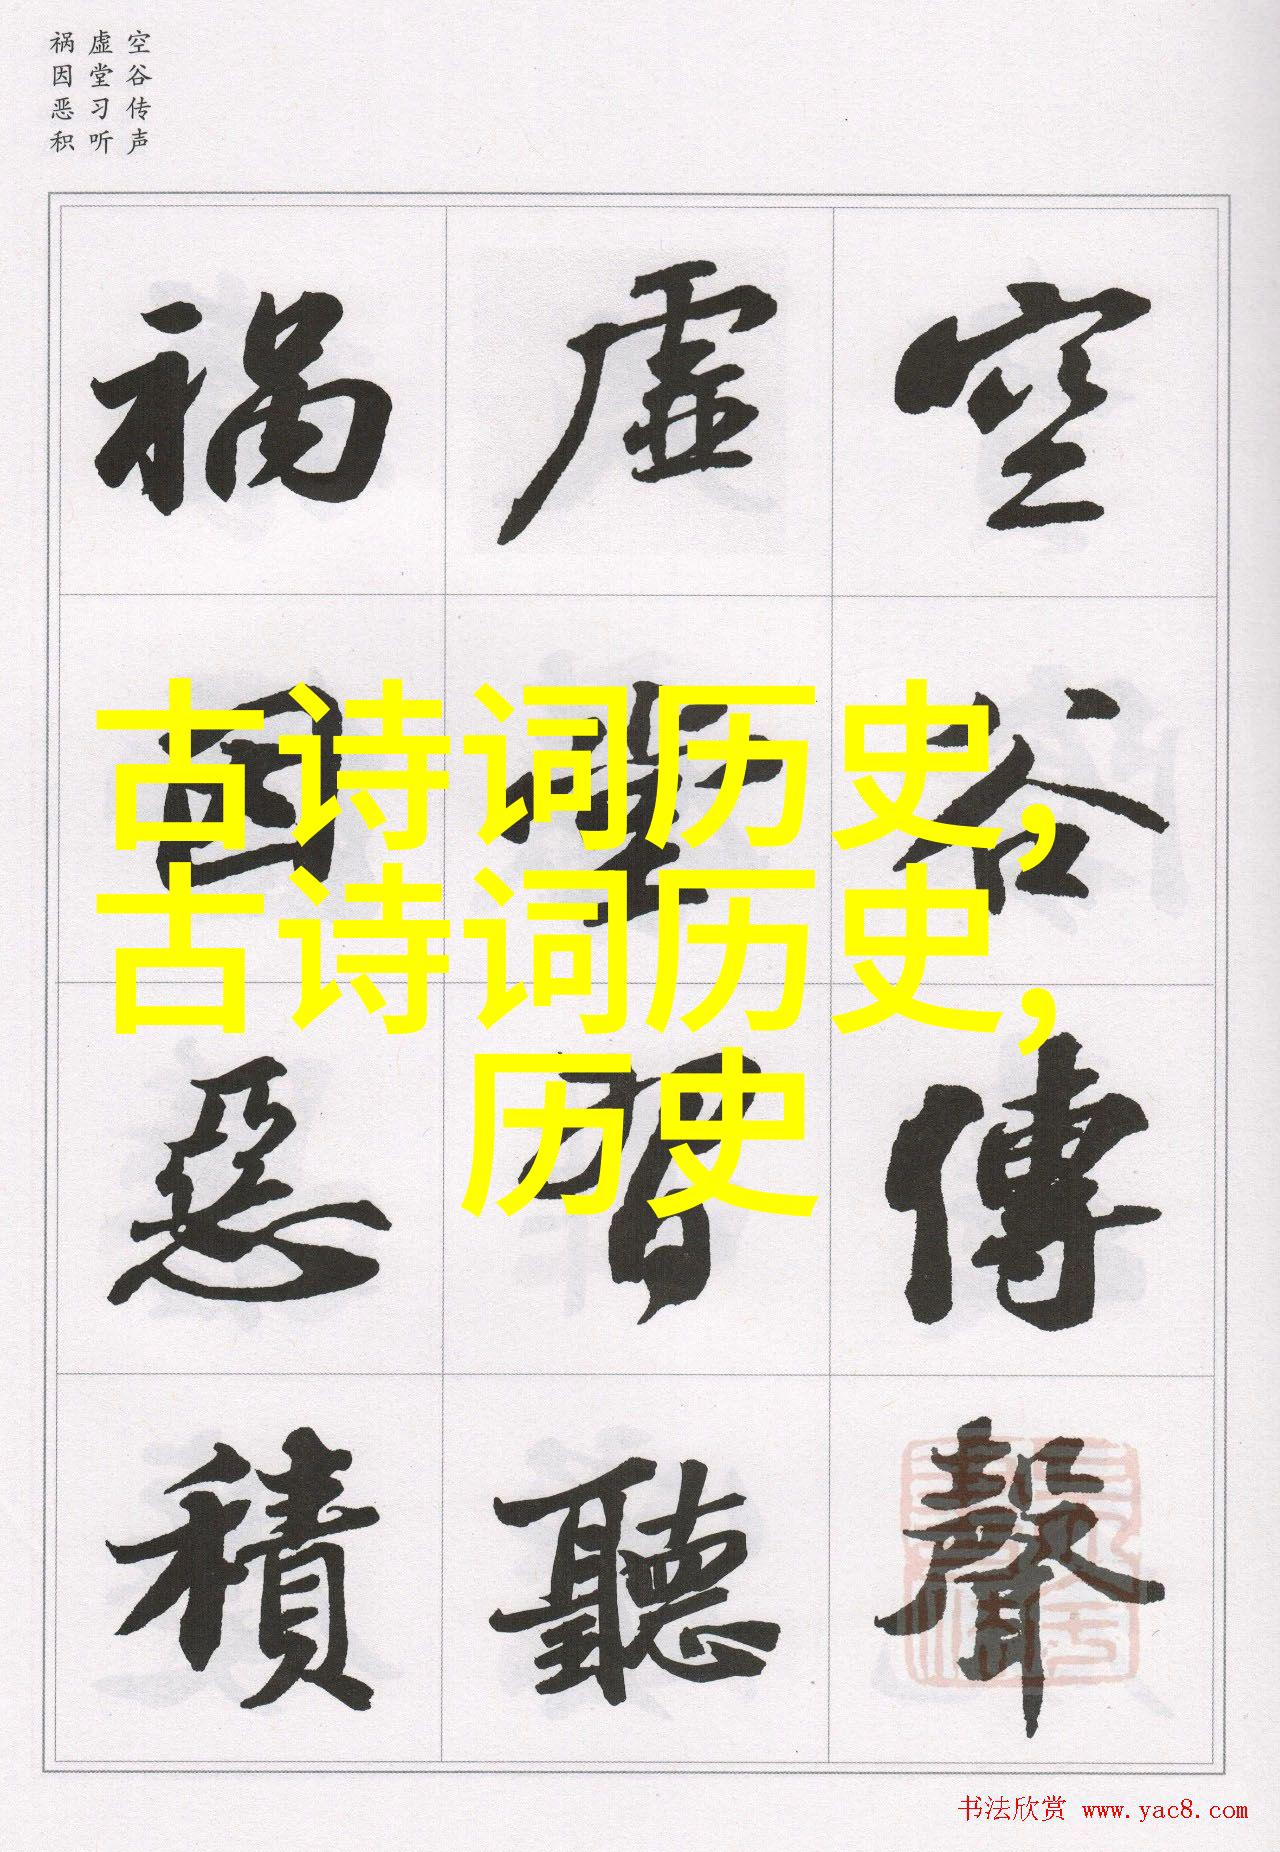 空谷传声
虚堂习听
祸因恶积
空谷傳聲
虚堂習聽
禍因惡積
古诗词历史,
古诗词历史,
历史
书法欣赏 www.yac8.com